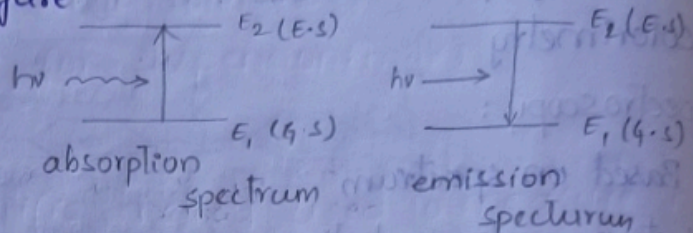 E2 (E.S)
hν
E1 (G.S)
absorption
spectrum
E2 (E.S)
hν
E1 (G.S)
emission
specturum